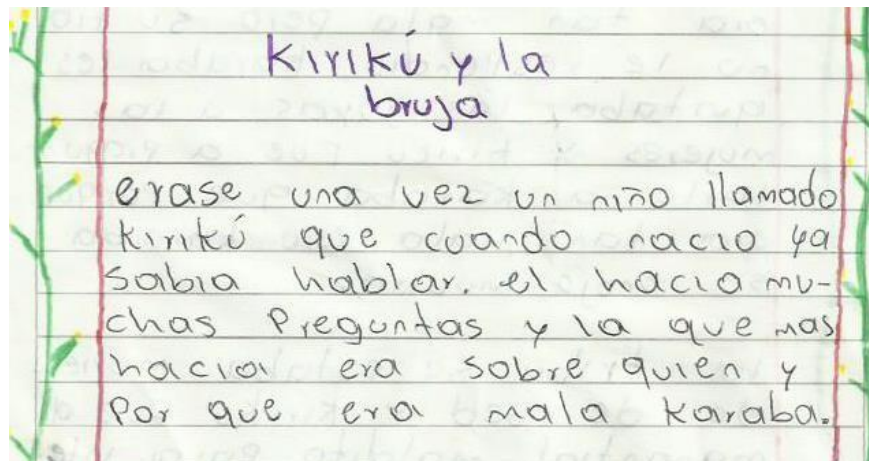 Kirikú y la
bruja
erase una vez un niño llamado
Kirikú que cuando nacio ya
sabia hablar. el hacia mu-
chas Preguntas y la que mas
hacia era sobre quien y
Por que era mala Karaba.